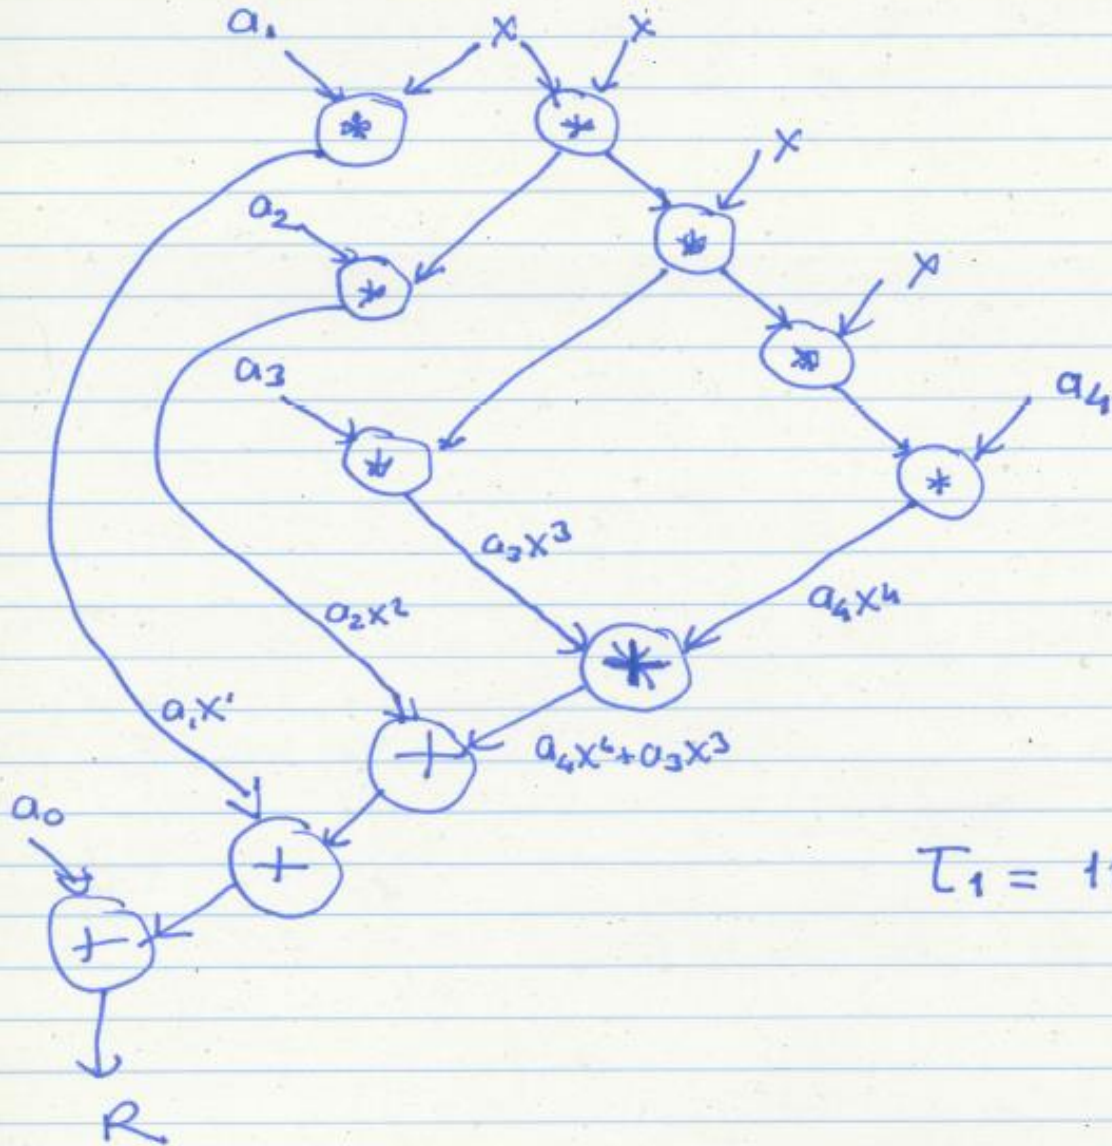 a₁ x x
*
*
x
a₂
*
*
x
a₃
*
a₄
*
*
a₃x³
a₄x⁴
a₂x²
*
a₁x¹
+
a₄x⁴+a₃x³
a₀
+
T₁ =
+
R